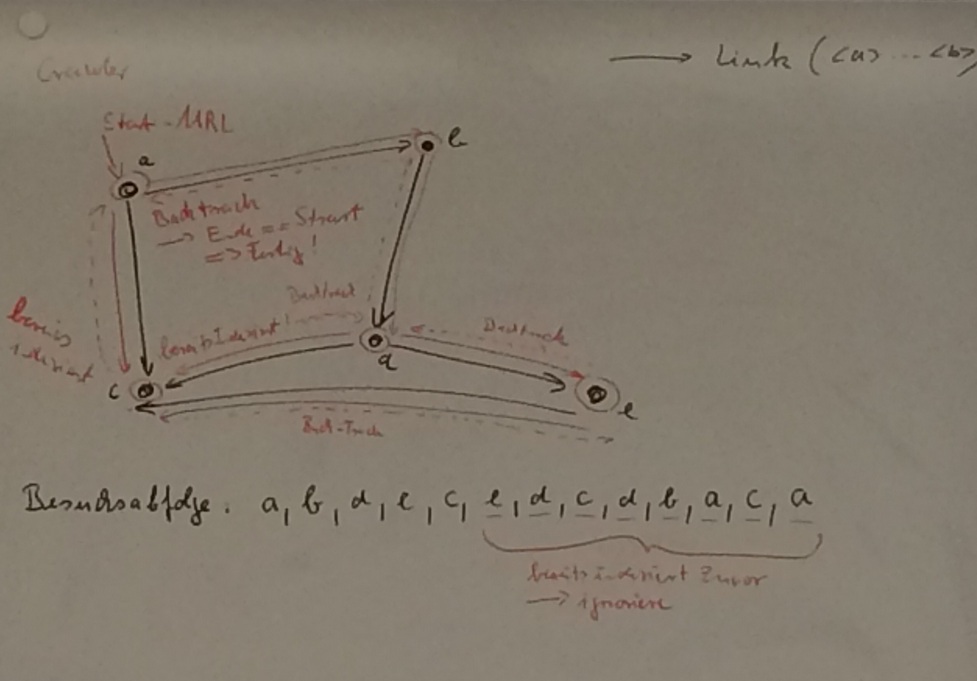 Crawler
→ Link (<a> ... <b>
Start-URL
a
b
Backtrack
→ Ende == Start
=> Fertig!
Backtrack
bereits indexiert
bereits Indexiert!
Backtrack
d
c
e
Back-Track
Besuchsabfolge: a, b, d, e, c, e, d, c, d, b, a, c, a
bereits indexiert zuvor
→ ignoriere